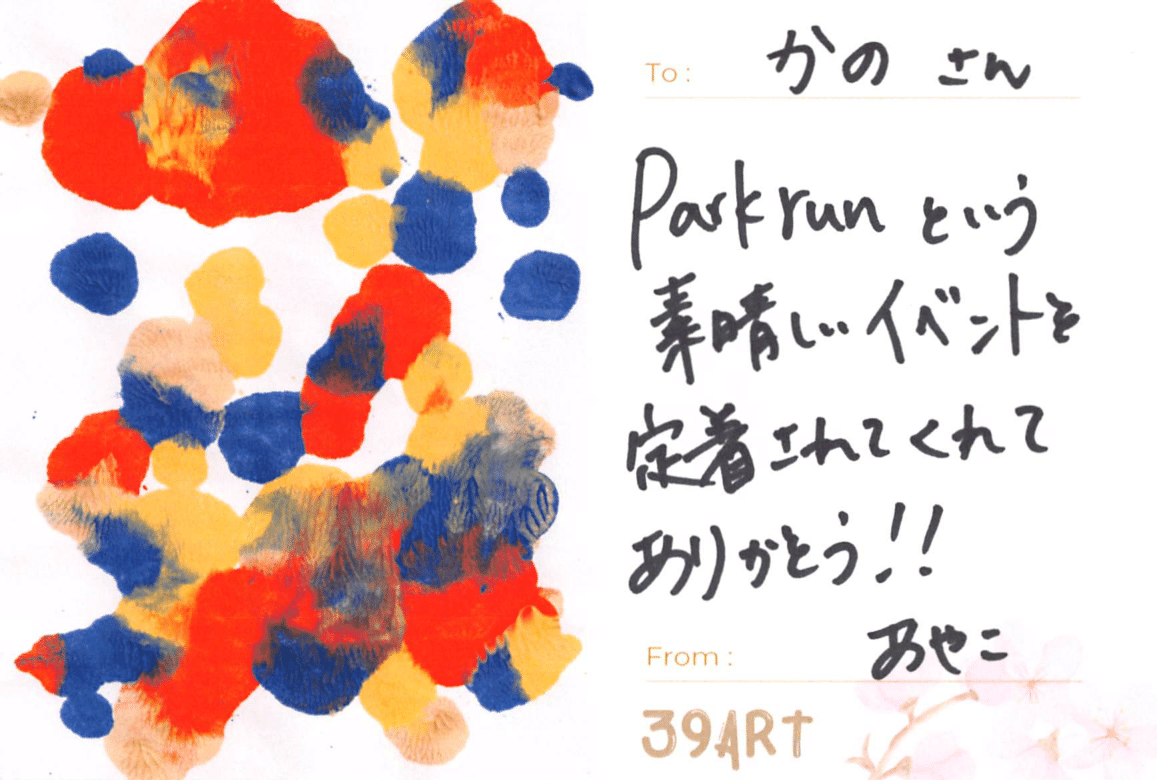 To: かの さん
Parkrun という
素晴しいイベントを
定着されてくれて
ありがとう!!
From: あやこ
39ART